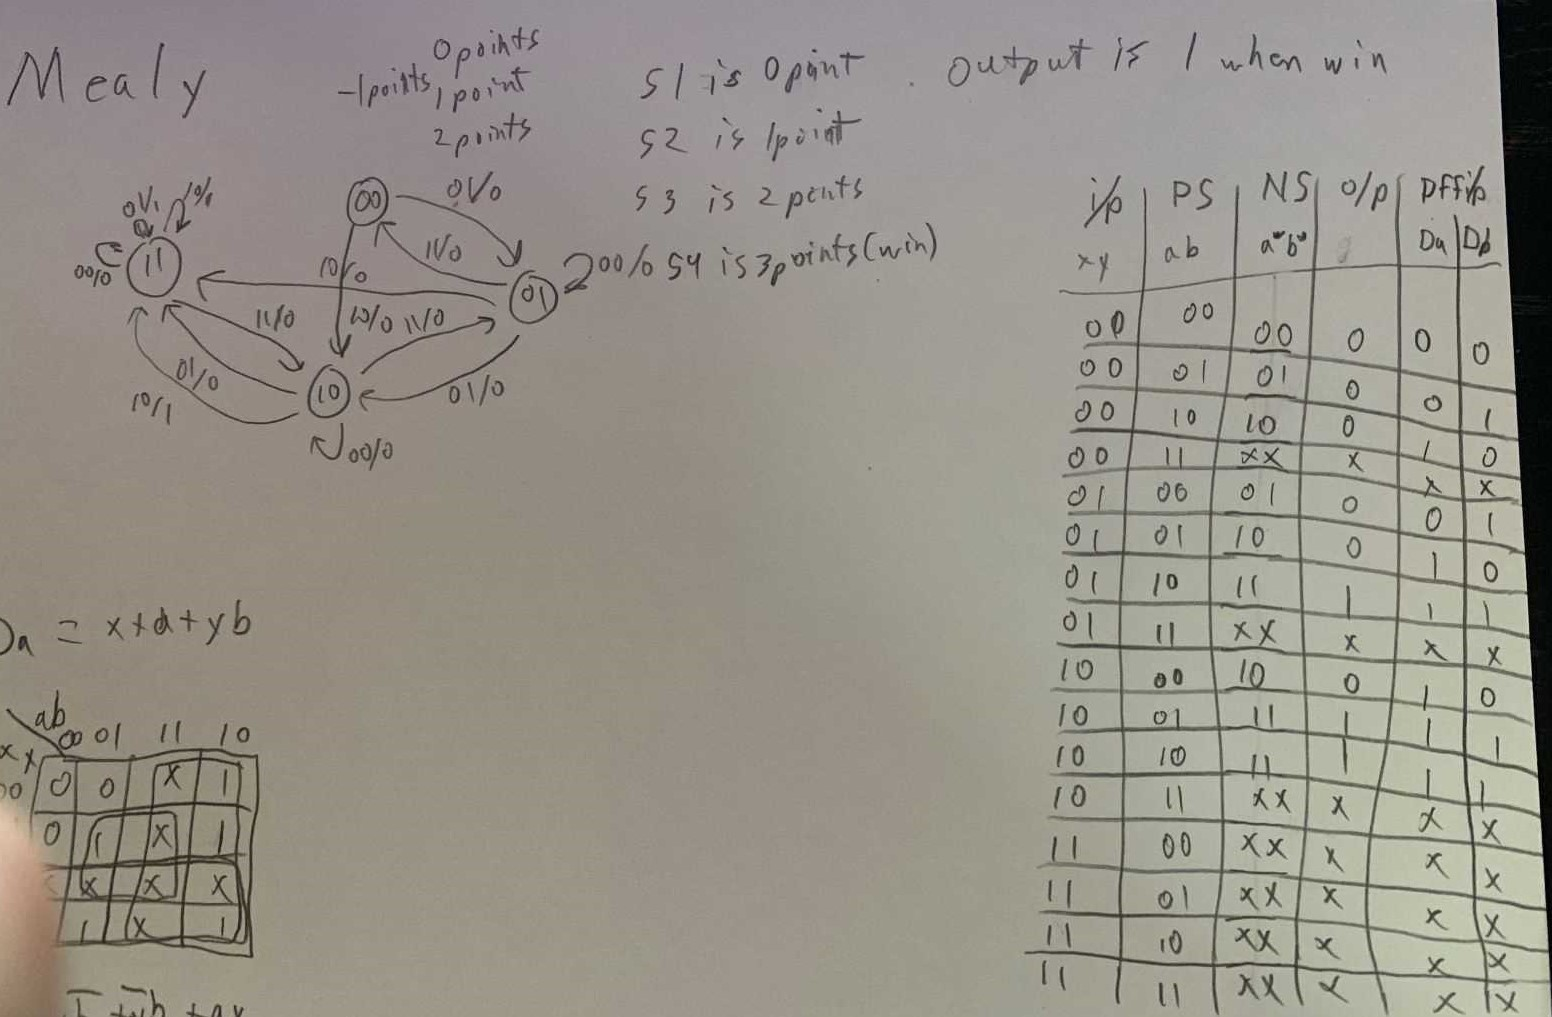 Mealy
-1points,
0points
1point
2points
S1 is 0point . Output is 1 when win
S2 is 1point
S3 is 2points
S4 is 3points(win)
00
01/0
11/0
01
00/0
10/0
10/0
11/0
01/1
10/1
00/0
11
11/0
01/0
10/1
10
01/0
00/0
i/p PS NS o/p DFFi/p
xy ab a*b* Da Db
00 00 00 0 0 0
00 01 01 0 0 1
00 10 10 0 1 0
00 11 xx x x x
01 00 01 0 0 1
01 01 10 0 1 0
01 10 11 1 1 1
01 11 xx x x x
10 00 10 0 1 0
10 01 11 1 1 1
10 10 11 1 1 1
10 11 xx x x x
11 00 xx x x x
11 01 xx x x x
11 10 xx x x x
11 11 xx x x x
Da = x+a+yb
ab
00 01 11 10
xy
0 0 x 1
0 1 x 1
x x x
1 x 1